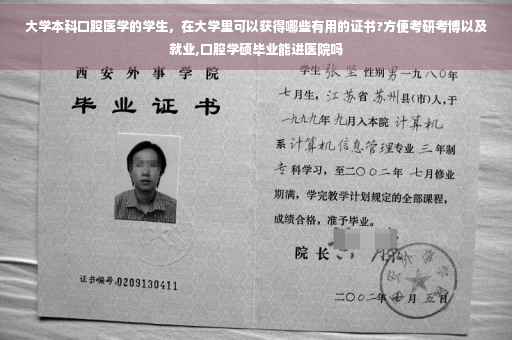 大学本科口腔医学的学生，在大学里可以获得哪些有用的证书?方便考研考博以及
就业,口腔学硕毕业能进医院吗
西安外事学院
毕业证书
证书编号:0209130411
学生 张坚 性别 男 一九八〇年
七月生，江苏省 苏州 县(市)人,于
一九九九年 九月入本院 计算机
系 计算机信息管理 专业 三年制
专科学习，至二〇〇二年 七月修业
期满，学完教学计划规定的全部课程，
成绩合格，准予毕业。
院长
二〇〇二年 七月 五日